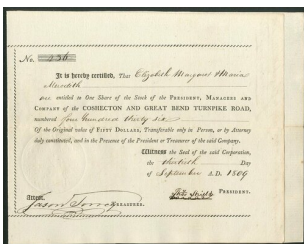 No. 236
It is hereby certified, That Elizabeth Margaret & Maria
Meredith are entitled to One Share of the Stock of the PRESIDENT, MANAGERS AND
COMPANY of the COSHECTON AND GREAT BEND TURNPIKE ROAD,
numbered four hundred thirty six
Of the Original value of FIFTY DOLLARS, Transferable only in Person, or by Attorney
duly constituted, and in the Presence of the President or Treasurer of the said Company.
Witness the Seal of the said Corporation,
the thirtieth Day
of September A.D. 1809
PRESIDENT.
Attest,
Jason Torrey TREASURER.